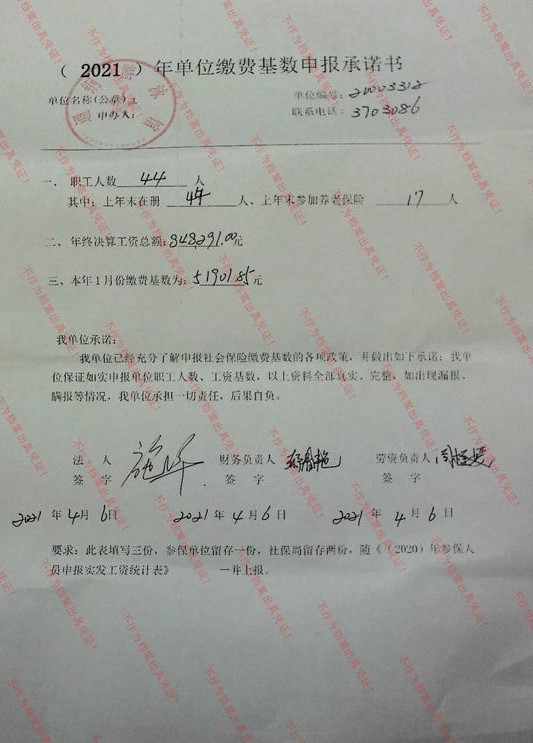 ( 2021 ) 年单位缴费基数申报承诺书
单位名称(公章):
单位编号: 21003312
申办人:
联系电话: 3703086
一、 职工人数 44 人
其中: 上年末在册 44 人、上年末参加养老保险 17 人
二、年终决算工资总额: 848291.00元
三、本年1月份缴费基数为: 51901.85元
我单位承诺:
我单位已经充分了解申报社会保险缴费基数的各项政策, 并做出如下承诺: 我单
位保证如实申报单位职工人数、工资基数, 以上资料全部真实、完整, 如出现漏报、
瞒报等情况, 我单位承担一切责任, 后果自负。
法 人 财务负责人 劳资负责人
签 字 签 字 签 字
2021 年 4 月 6 日 2021 年 4 月 6 日 2021 年 4 月 6 日
要求: 此表填写三份, 参保单位留存一份, 社保局留存两份, 随《 (2020) 年参保人
员申报实发工资统计表》 一并上报。
不作为档案出具凭证!